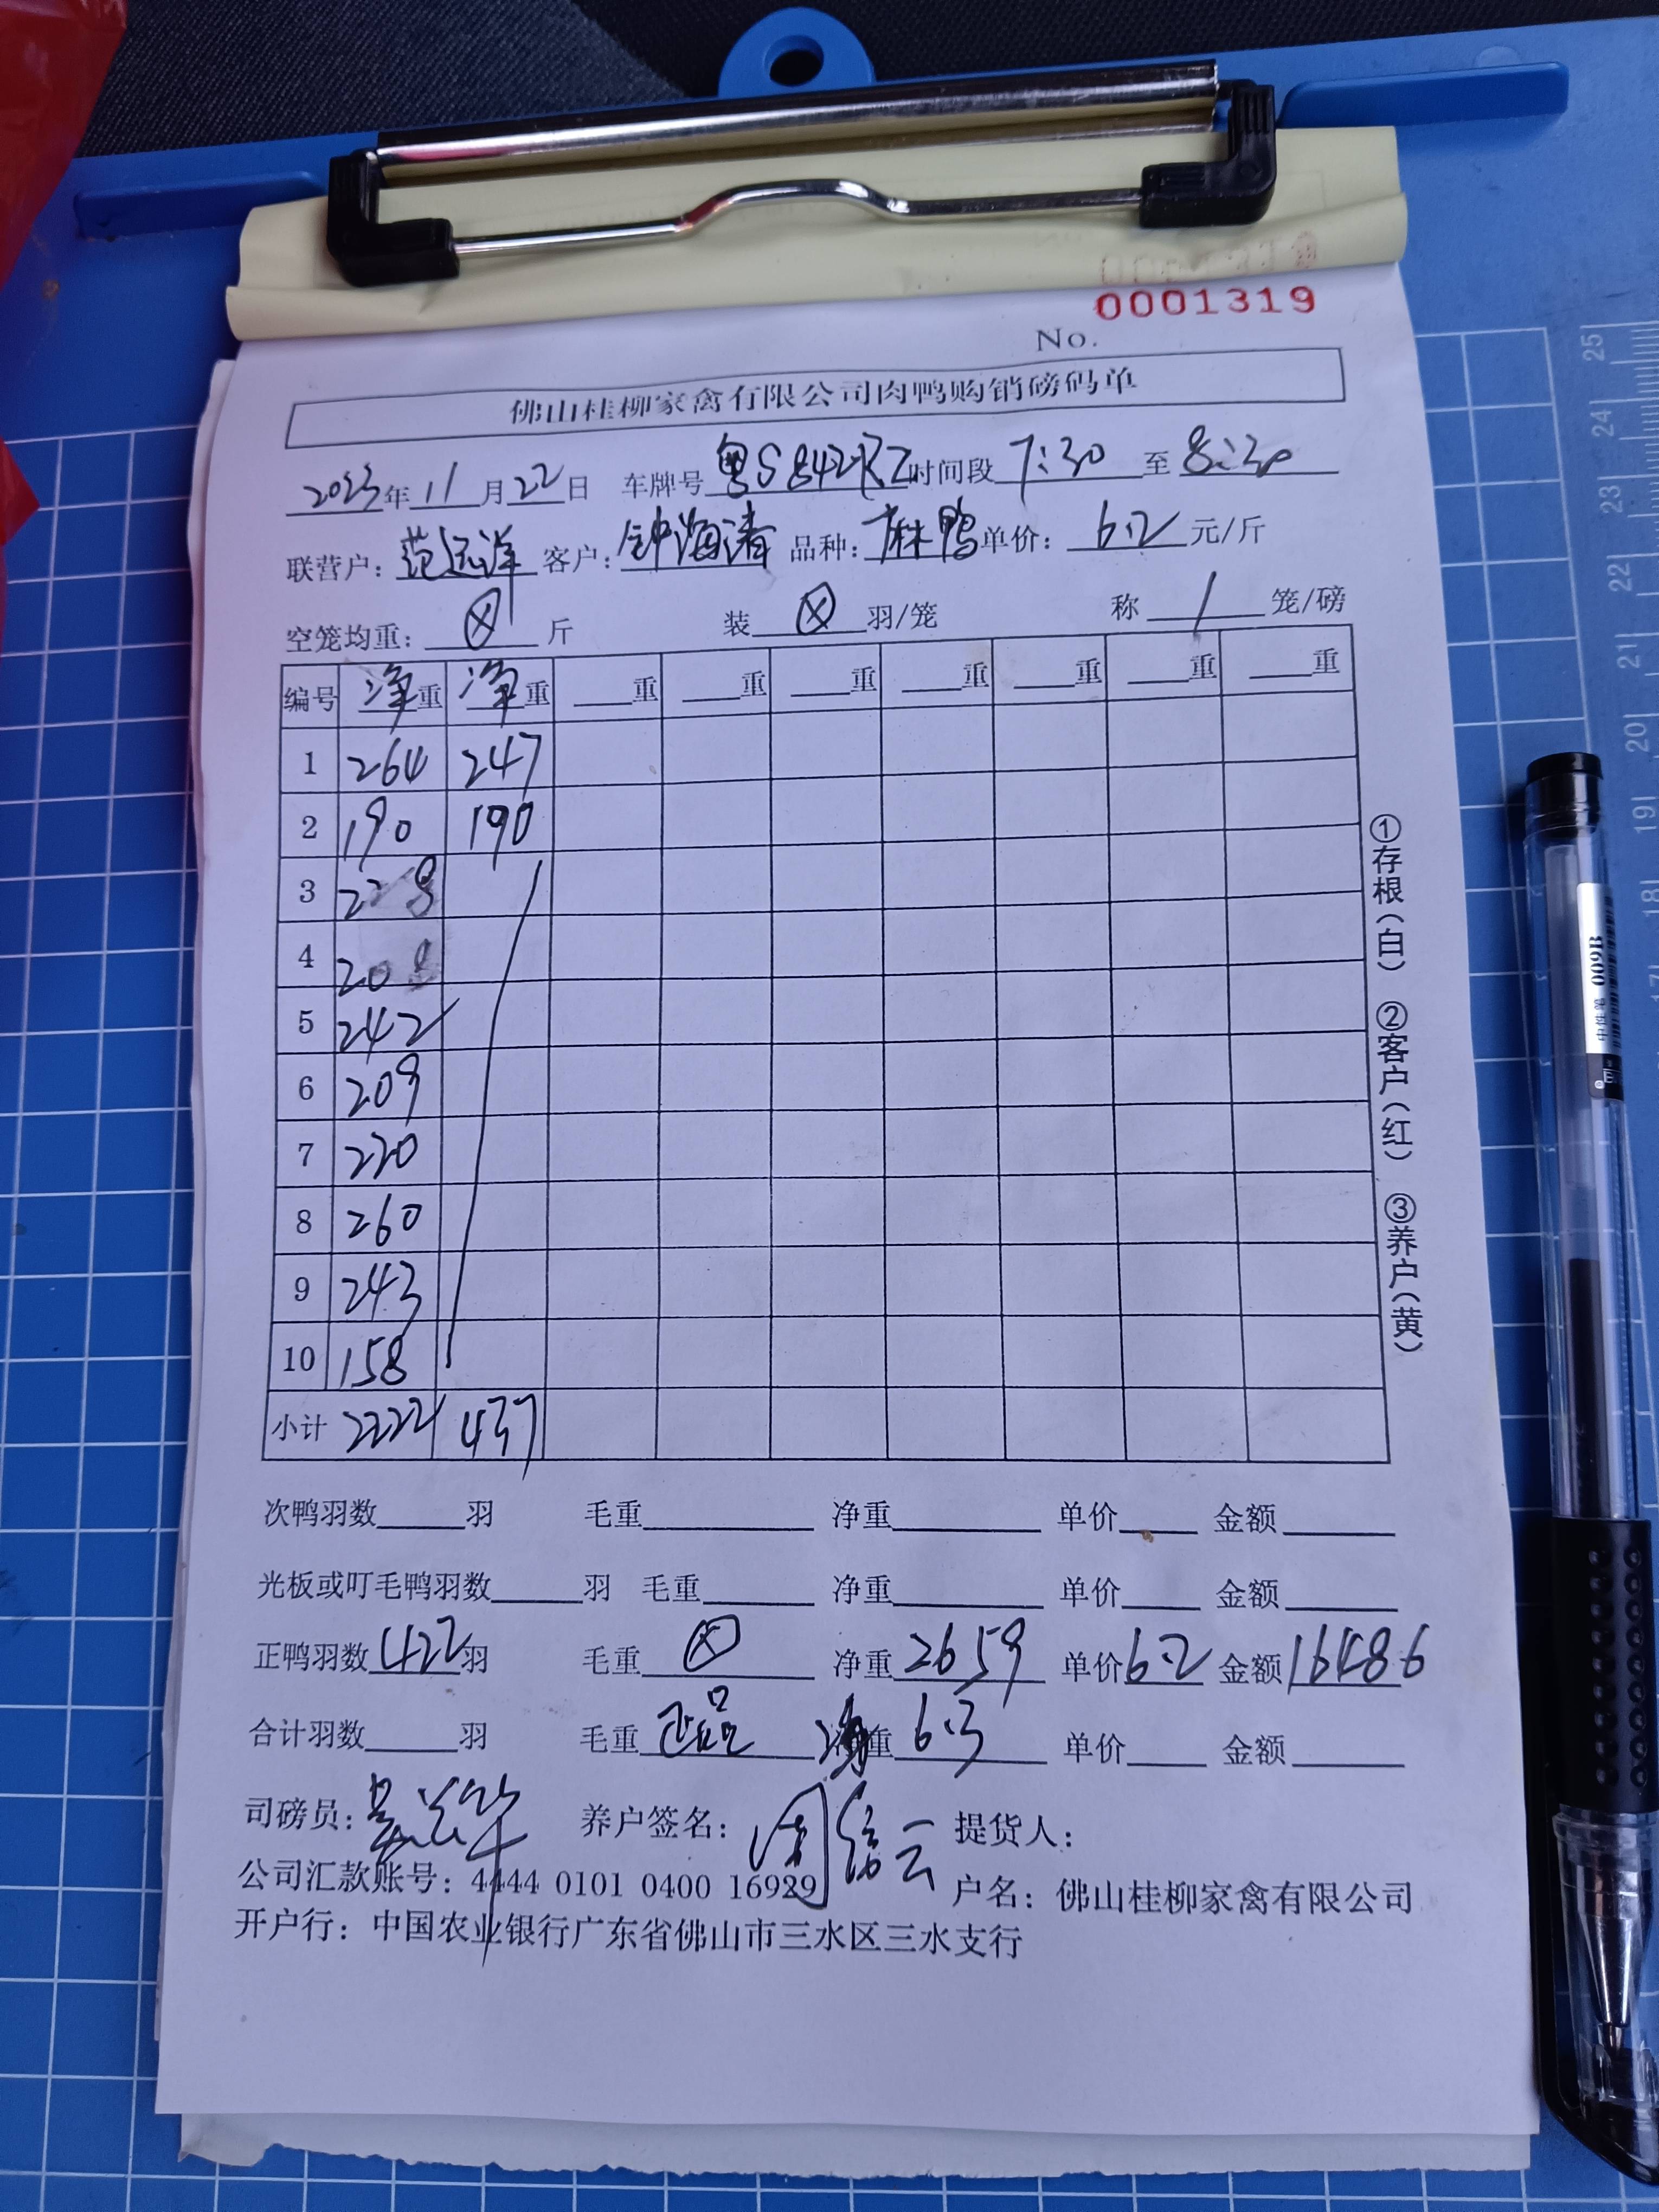 0001319
No.
佛山桂柳家禽有限公司肉鸭购销磅码单
2023年11月22日 车牌号粤S842RZ时间段7:30至8:30
联营户:范远洋 客户:钟海涛 品种:麻鸭 单价:6.2元/斤
空笼均重:ⓧ斤 装ⓧ羽/笼 称/笼/磅
编号 净重 净重 重 重 重 重 重 重 重
1 264 247
2 190 190
3 228
4 208
5 242
6 209
7 220
8 260
9 243
10 158
小计 2222 437
次鸭羽数 羽 毛重 净重 单价 金额
光板或叮毛鸭羽数 羽 毛重 净重 单价 金额
正鸭羽数422羽 毛重ⓧ 净重2659 单价6.2 金额16486
合计羽数 羽 毛重 重6.3 单价 金额
司磅员: 养户签名: 提货人:
公司汇款账号:4444 0101 0400 16929 户名:佛山桂柳家禽有限公司
开户行:中国农业银行广东省佛山市三水区三水支行
①存根(白) ②客户(红) ③养户(黄)
中性笔 009B
25
24
23
22
21
20
19
18
17